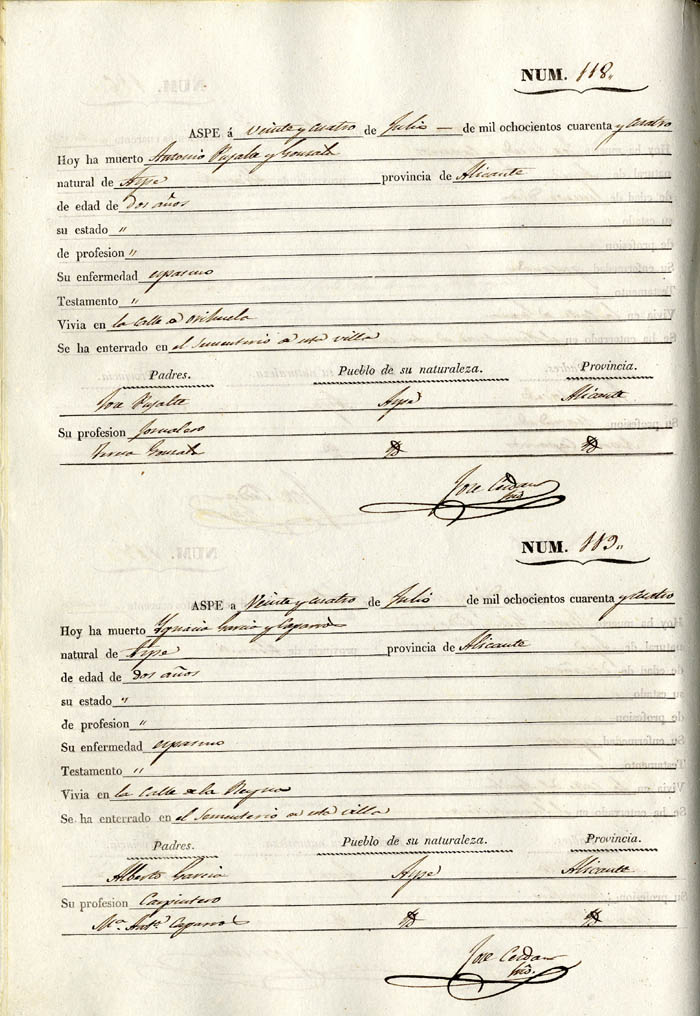 NUM. 118.
ASPE á Veinte y cuatro de Julio - de mil ochocientos cuarenta y cuatro
Hoy ha muerto Antonio Pujalte y Gonzalz
natural de Aspe provincia de Alicante
de edad de dos años
su estado "
de profesion "
Su enfermedad espasmo
Testamento "
Vivia en la Calle de Orihuela
Se ha enterrado en el Sementerio de esta villa
Padres. Pueblo de su naturaleza. Provincia.
Jose Pujalte Aspe Alicante
Su profesion Jornalero
Teresa
Jose Cerdan
NUM. 119.
ASPE a Veinte y cuatro de Julio de mil ochocientos cuarenta y cuatro
Hoy ha muerto Ignacio Garcia y Caparros
natural de Aspe provincia de Alicante
de edad de dos años
su estado "
de profesion "
Su enfermedad espasmo
Testamento "
Vivia en la Calle de la Reyna
Se ha enterrado en el Sementerio de esta villa
Padres. Pueblo de su naturaleza. Provincia.
Alberto Garcia Aspe Alicante
Su profesion Carpintero
Mª. Antª. Caparros
Jose Cerdan